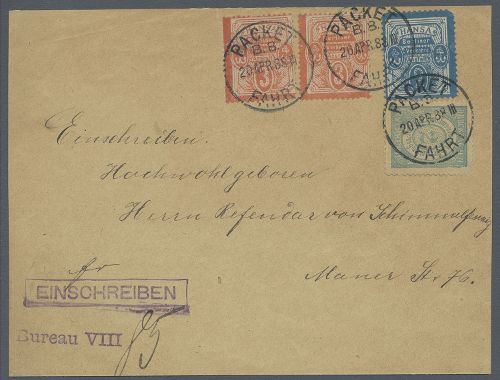 PACKET
B.B.
20 APR. 88 III
FAHRT
PACKET
B.B.
20 APR. 88 III
FAHRT
HANSA
PACKET
20 APR. 88 III
FAHRT
Einschreiben.
Hochwohlgeboren
Herrn Referendar von
fr
Mauer St. 76.
EINSCHREIBEN
Bureau VIII
85